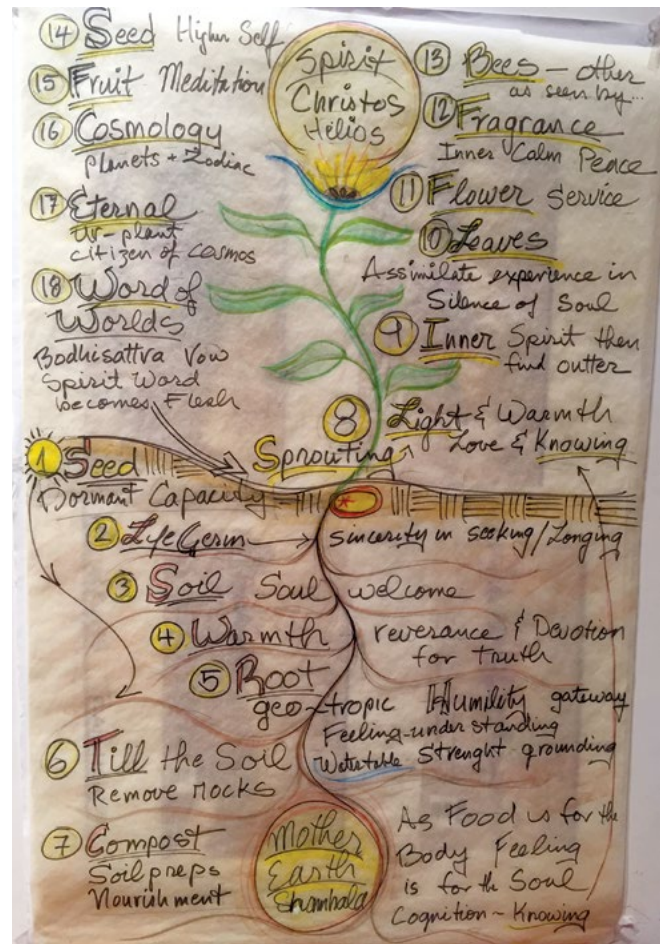 14 Seed Higher Self
15 Fruit Meditation
16 Cosmology
planets + Zodiac
17 Eternal
Ur-plant
citizen of cosmos
18 Word of
Worlds
Bodhisattva Vow
Spirit Word
becomes Flesh
Spirit
Christos
Helios
13 Bees – other
as seen by...
12 Fragrance
Inner Calm Peace
11 Flower Service
10 Leaves
Assimilate experience in
Silence of Soul
9 Inner Spirit then
find outter
8 Light & Warmth
Love & Knowing
Sprouting
1 Seed
Dormant Capacity
2 Life Germ → sincerity in seeking/Longing
3 Soil Soul welcome
4 Warmth reverance & Devotion
for Truth
5 Root
geo-tropic Humility gateway
Feeling-under standing
Watertable Strenght grounding
6 Till the Soil
Remove rocks
7 Compost
Soil preps
Nourishment
Mother
Earth
Shambala
As Food is for the
Body Feeling
is for the Soul
Cognition ~ Knowing